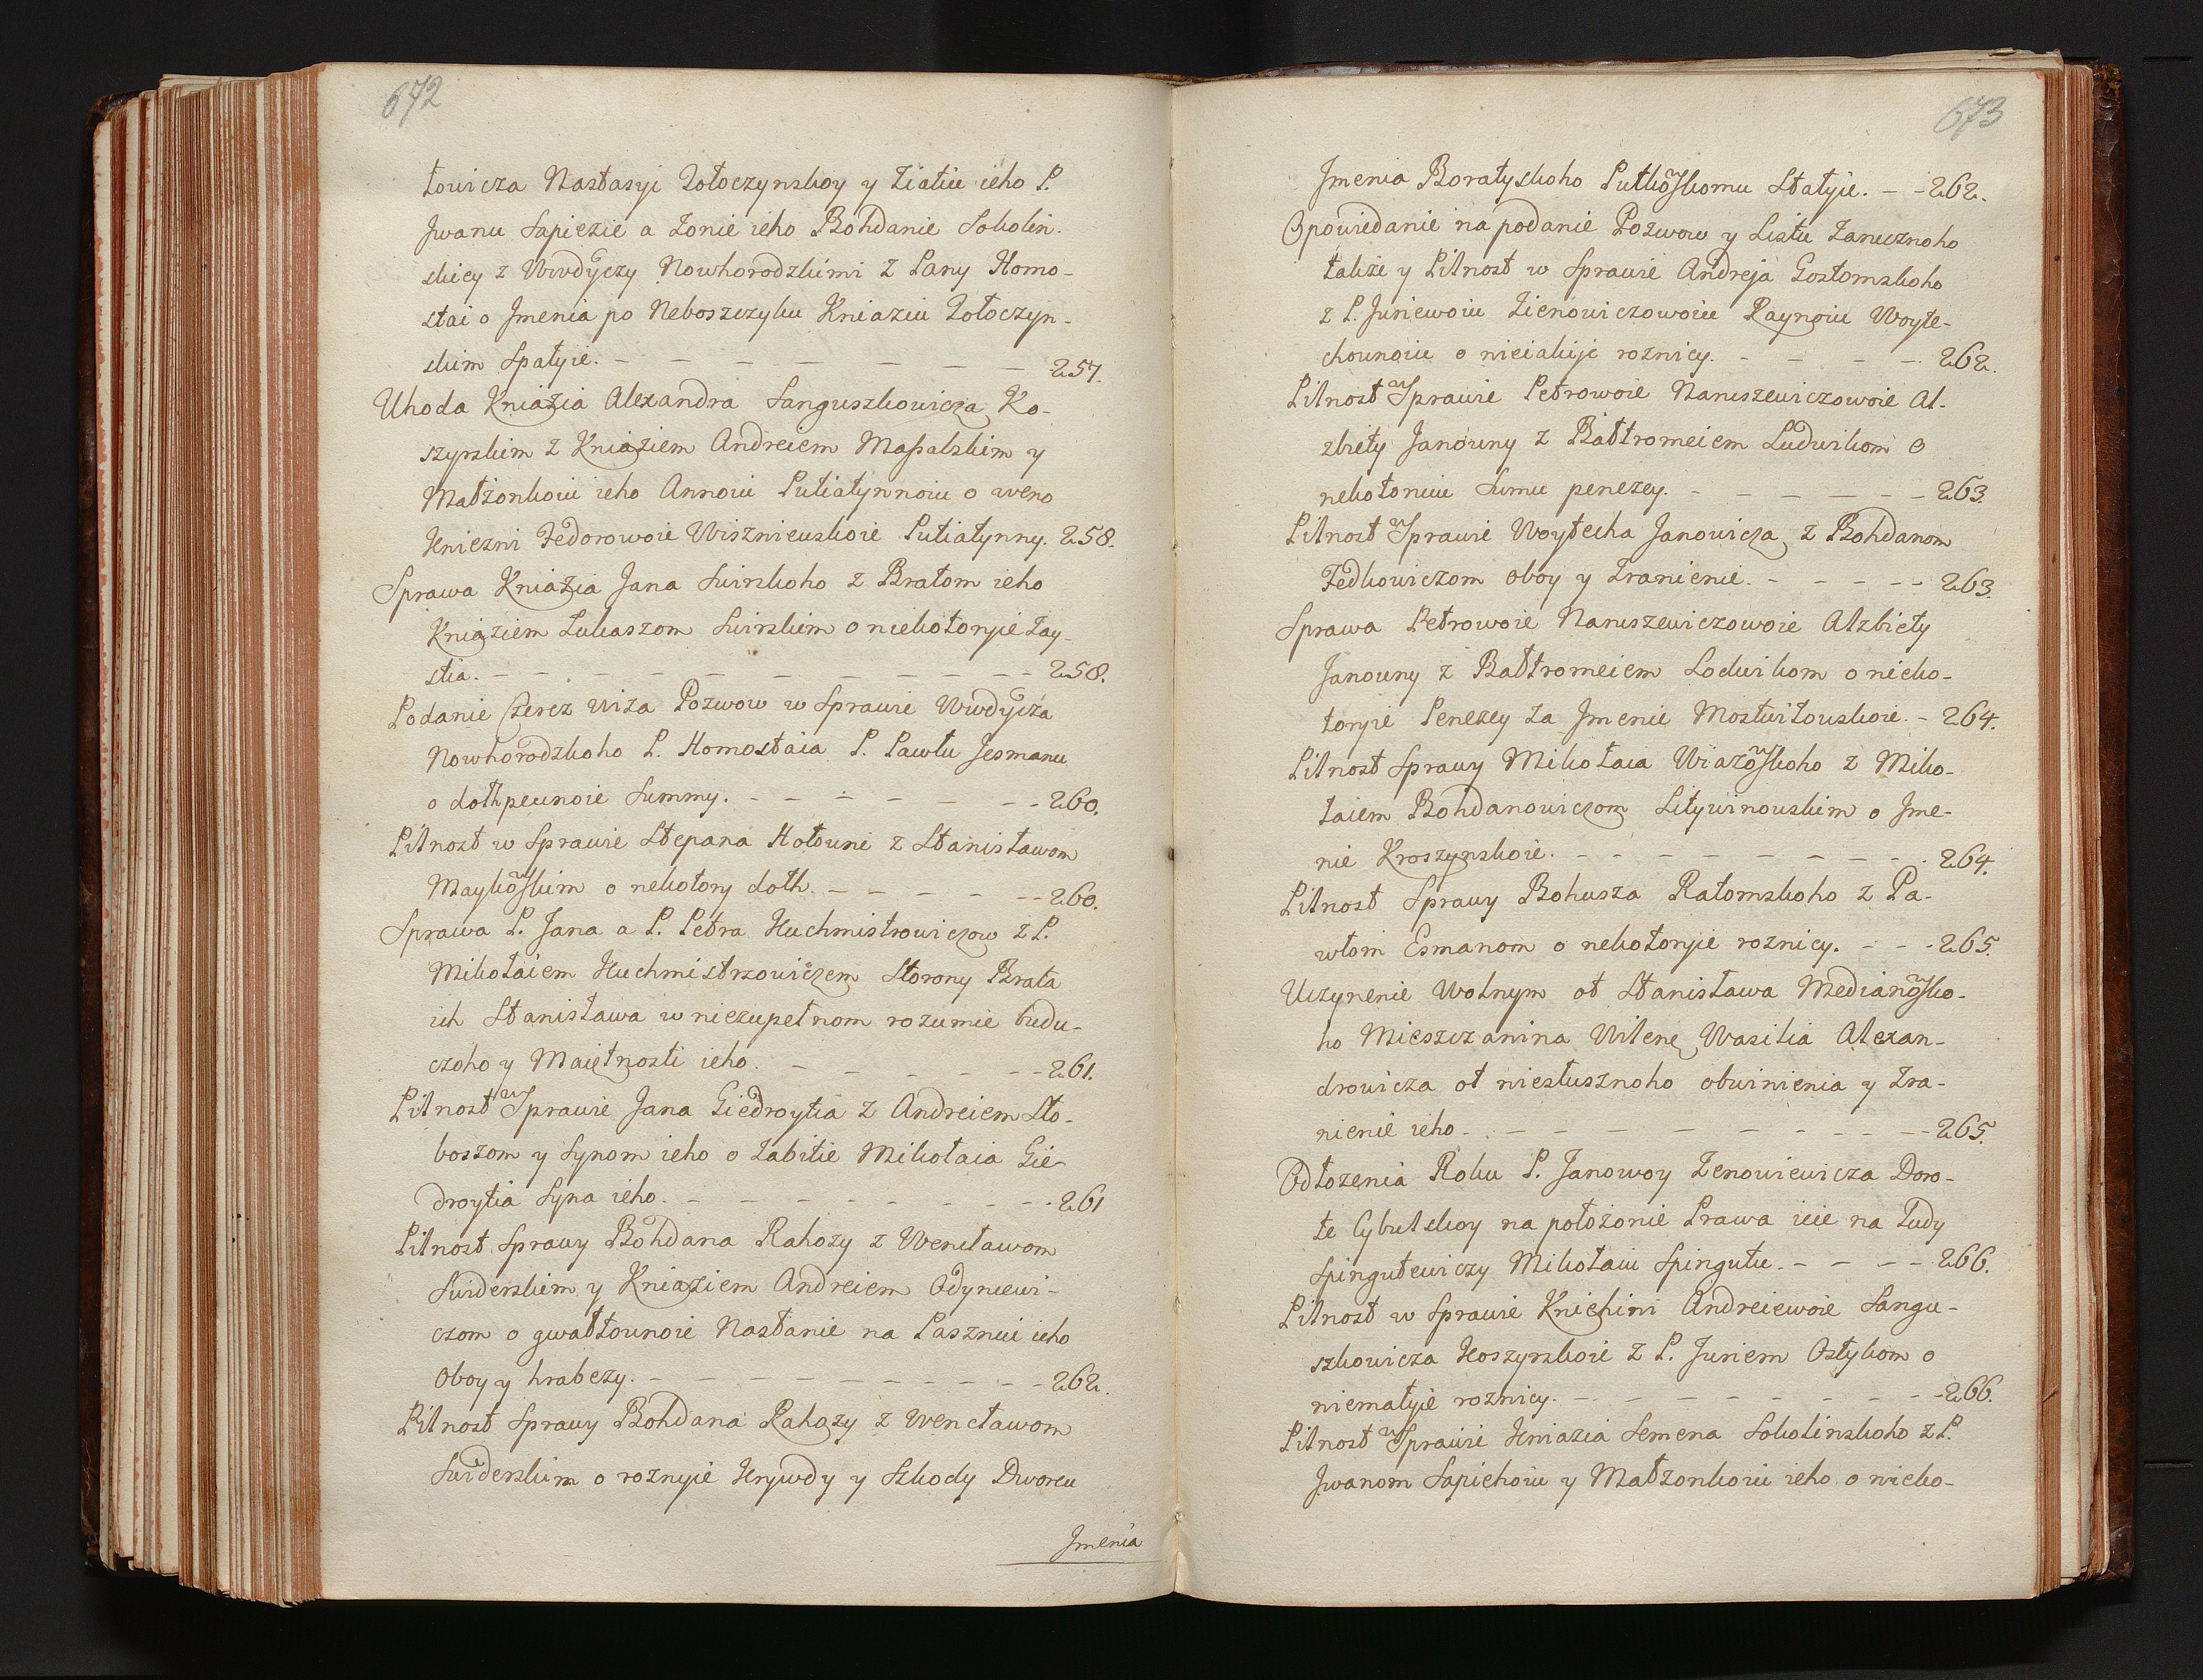 672
towicza Nastasyi Zołoczynskoy y Ziatiu ieho P.
Jwanu Sapiezie a Zonie ieho Bohdanie Sokolin.
skiey z Wwdyczy Nowhorodzkimi z Pany Homo-
stai o Jmenia po Neboszczyku Kniaziu Zołoczyn-
skim Spatyie. - - - - - - - 257.
Uhoda Kniazia Alexandra Sanguszkowicza Ko-
szyrskim z Kniaziem Andreiem Massalskim y
Małżonkoiu ieho Annoiu Putiatynnoiu o weno
Kniezni Fedorowoie Wiszniewskoie Putiatynny. 258.
Sprawa Kniazia Jana Swirskoho z Bratom ieho
Kniaziem Lukaszom Swirskim o niekotoryie Zay-
stia. - - - - - - - - - - - 258.
Podanie Czerez Wiza Pozwow w Sprawie Wwdycza
Nowhorodzkoho P. Homostaia P. Pawłu Jesmanu
o dołh pewnoie Summy. - - - - - - - 260.
Pilnost w Sprawie Stepana Hołowni z Stanisławom
Maykowskim o nekotory dołh. - - - - - - 260.
Sprawa P. Jana a P. Petra Kuchmistrowiczow z P.
Mikołaiem Kuchmistrzowiczem Storony Brata
ich Stanisława w niezupełnom rozumie budu-
czoho y Maiętnosti ieho. - - - - - - - 261.
Pilnost w Sprawie Jana Giedroytia z Andreiem Sto-
boszom y Synom ieho o Zabitie Mikołaia Gie-
droytia Syna ieho. - - - - - - - - 261
Pilnost Sprawy Bohdana Rahozy z Wencławom
Swiderskim y Kniaziem Andreiem Odyncewi-
czom o gwałtownoie Nastanie na Pasznui ieho
Oboy y hrabezy. - - - - - - - - - - 262.
Pilnost Sprawy Bohdana Rahozy z Wencławom
Swiderskim o roznyie Krywdy y Szkody Dworcu
Jmenia
673
Jmenia Boratyskoho Putkowskomu Statyie. - - 262.
Opowiedanie na podanie Pozwow y Listu Zarucznoho
takze y Pilnost w Sprawie Andreja Gostomskoho
z P. Juriewoiu Zienowiczowoiu Raynoiu Woyte-
chownoiu o nieiakije roznicy. - - - - - 262.
Pilnost w Sprawie Petrowoie Naruszewiczowoie Al.
zbiety Janowny z Bałtromeiem Ludwikom o
nekotoruu Sumu penezey. - - - - - - 263.
Pilnost w Sprawie Woytecha Janowicza z Bohdanom
Fedkowiczom oboy y Zranienie. - - - - - 263.
Sprawa Petrowoie Naruszewiczowoie Alzbiety
Janowny z Bałtromeiem Lodwikom o nieko-
toryie Penezey za Jmenie Mostwiłowskoie. - 264.
Pilnost Sprawy Mikołaia Wiazowskoho z Miko-
łaiem Bohdanowiczom Litywinowskim o Jme-
nie Kroszynskoie. - - - - - - - - 264.
Pilnost Sprawy Bohusza Ratomskoho z Pa-
włom Esmanom o nekotoryie roznicy. - - - 265.
Uczynenie Wolnym ot Stanisława Medianowsko-
ho Mieszczanina Wilene Wasilia Alexan-
drowicza ot niesłusznoho obwinienia y Zra-
nienie ieho. - - - - - - - - - 265.
Odłozenia Roku P. Janowoy Zenowiewicza Doro-
te Cybulskoy na położonie Prawa iuie na Ludy
Spingułewiczy Mikołaiu Spingułu. - - - - 266.
Pilnost w Sprawie Kniehini Andreiewoie Sangu-
szkowicza Koszyrskoie z P. Juriem Ostykom o
niemałyie roznicy. - - - - - - - - 266.
Pilnost w Sprawie Kniazia Semena Sokolinskoho z P.
Jwanom Sapiehoiu y Małzonkoiu ieho o nieko-